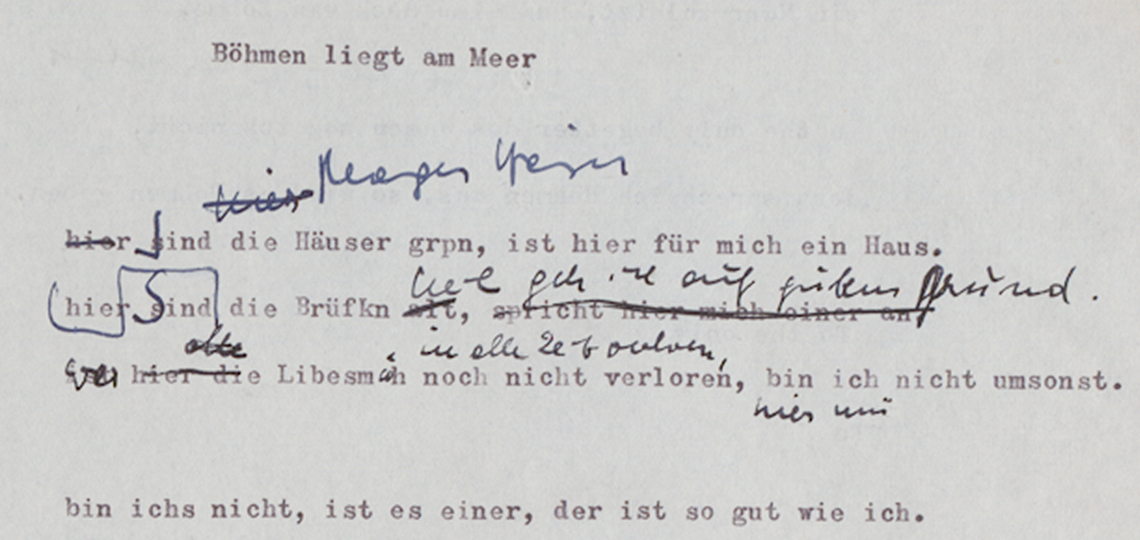 Böhmen liegt am Meer
hier
hier sind die Häuser grpn, ist hier für mich ein Haus.
heil geh ich auf gutem Grund.
hier sind die Brüfkn alt, spricht hier mich einer an
alte in alle Zeit verloren,
hier die Libesmüh noch nicht verloren, bin ich nicht umsonst.
hier
bin ichs nicht, ist es einer, der ist so gut wie ich.